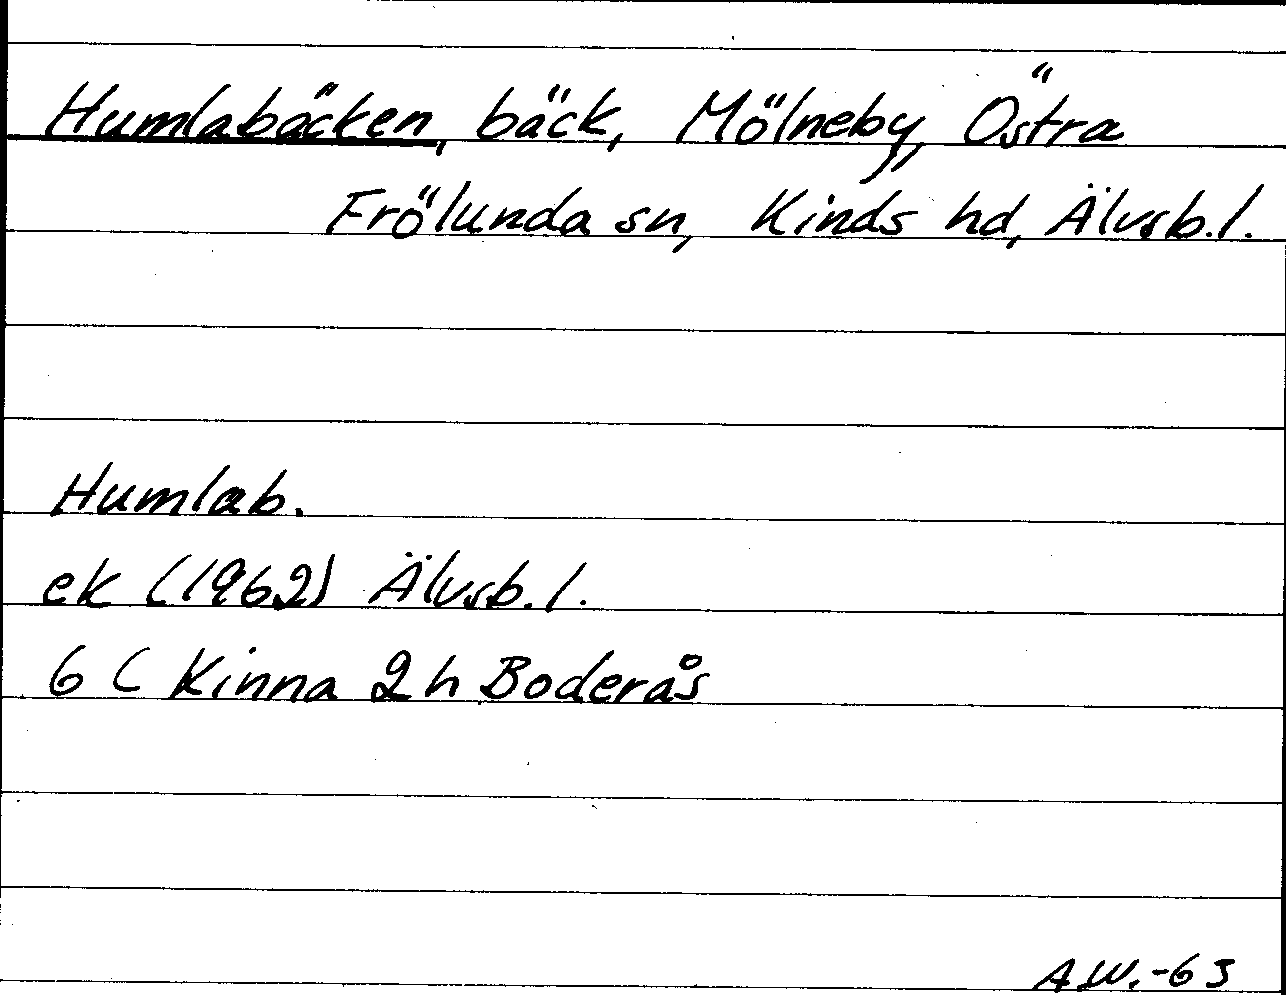 Humlabäcken, bäck, Mölneby, Östra
Frölunda sn, Kinds hd, Älvsb.l.
Humlab.
ek (1962) Älvsb.l.
6 C Kinna 2 h Boderås
A.W.-63